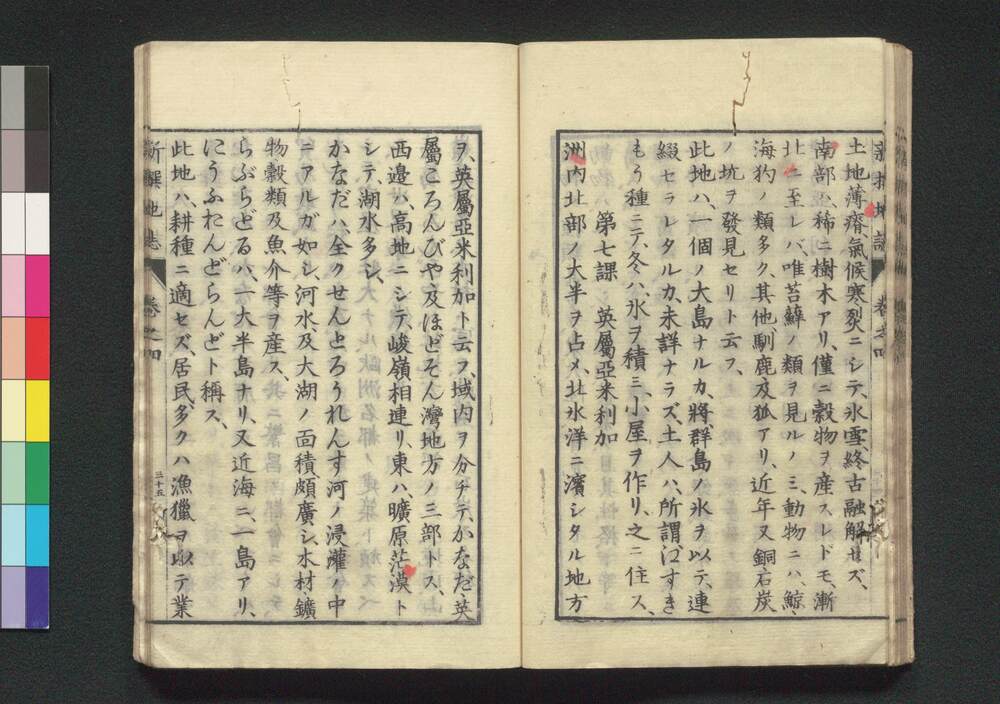 土地薄瘠、氣候寒烈ニシテ、氷雪終古融解セズ、
南部ハ、稀ニ樹木アリ、僅ニ穀物ヲ産スレドモ、漸
北ニ至レバ、唯苔蘚ノ類ヲ見ルノミ、動物ニハ、鯨、
海豹ノ類多ク、其他、馴鹿及狐アリ、近年又銅石炭
ノ坑ヲ發見セリト云フ、
此地ハ、一個ノ大島ナルカ、將群島ノ氷ヲ以テ、連
綴セラレタルカ、未詳ナラズ、土人ハ、所謂江すき
もう種ニテ、冬ハ、氷ヲ積ミ、小屋ヲ作リ、之ニ住ス、
第七課 英屬亞米利加
洲内北部ノ大半ヲ占メ、北氷洋ニ濱シタル地方
ヲ、英屬亞米利加ト云フ、域内ヲ分チテ、かなだ、英
屬ころんびや、及ほどそん灣地方ノ三部トス、
西邊ハ、高地ニシテ、峻嶺相連リ、東ハ、曠原茫漠ト
シテ、湖水多シ、
かなだハ、全クせんとろうれんす河ノ浸灌ノ中
ニアルガ如シ、河水、及大湖ノ面積頗廣シ、木材、鑛
物、穀類及魚介等ヲ産ス、
らぶらどるハ、一大半島ナリ、又近海ニ、一島アリ、
にうふおんどらんどト稱ス、
此地ハ、耕種ニ適セズ、居民、多クハ漁獵ヲ以テ業
新撰地誌 卷之四 三十五